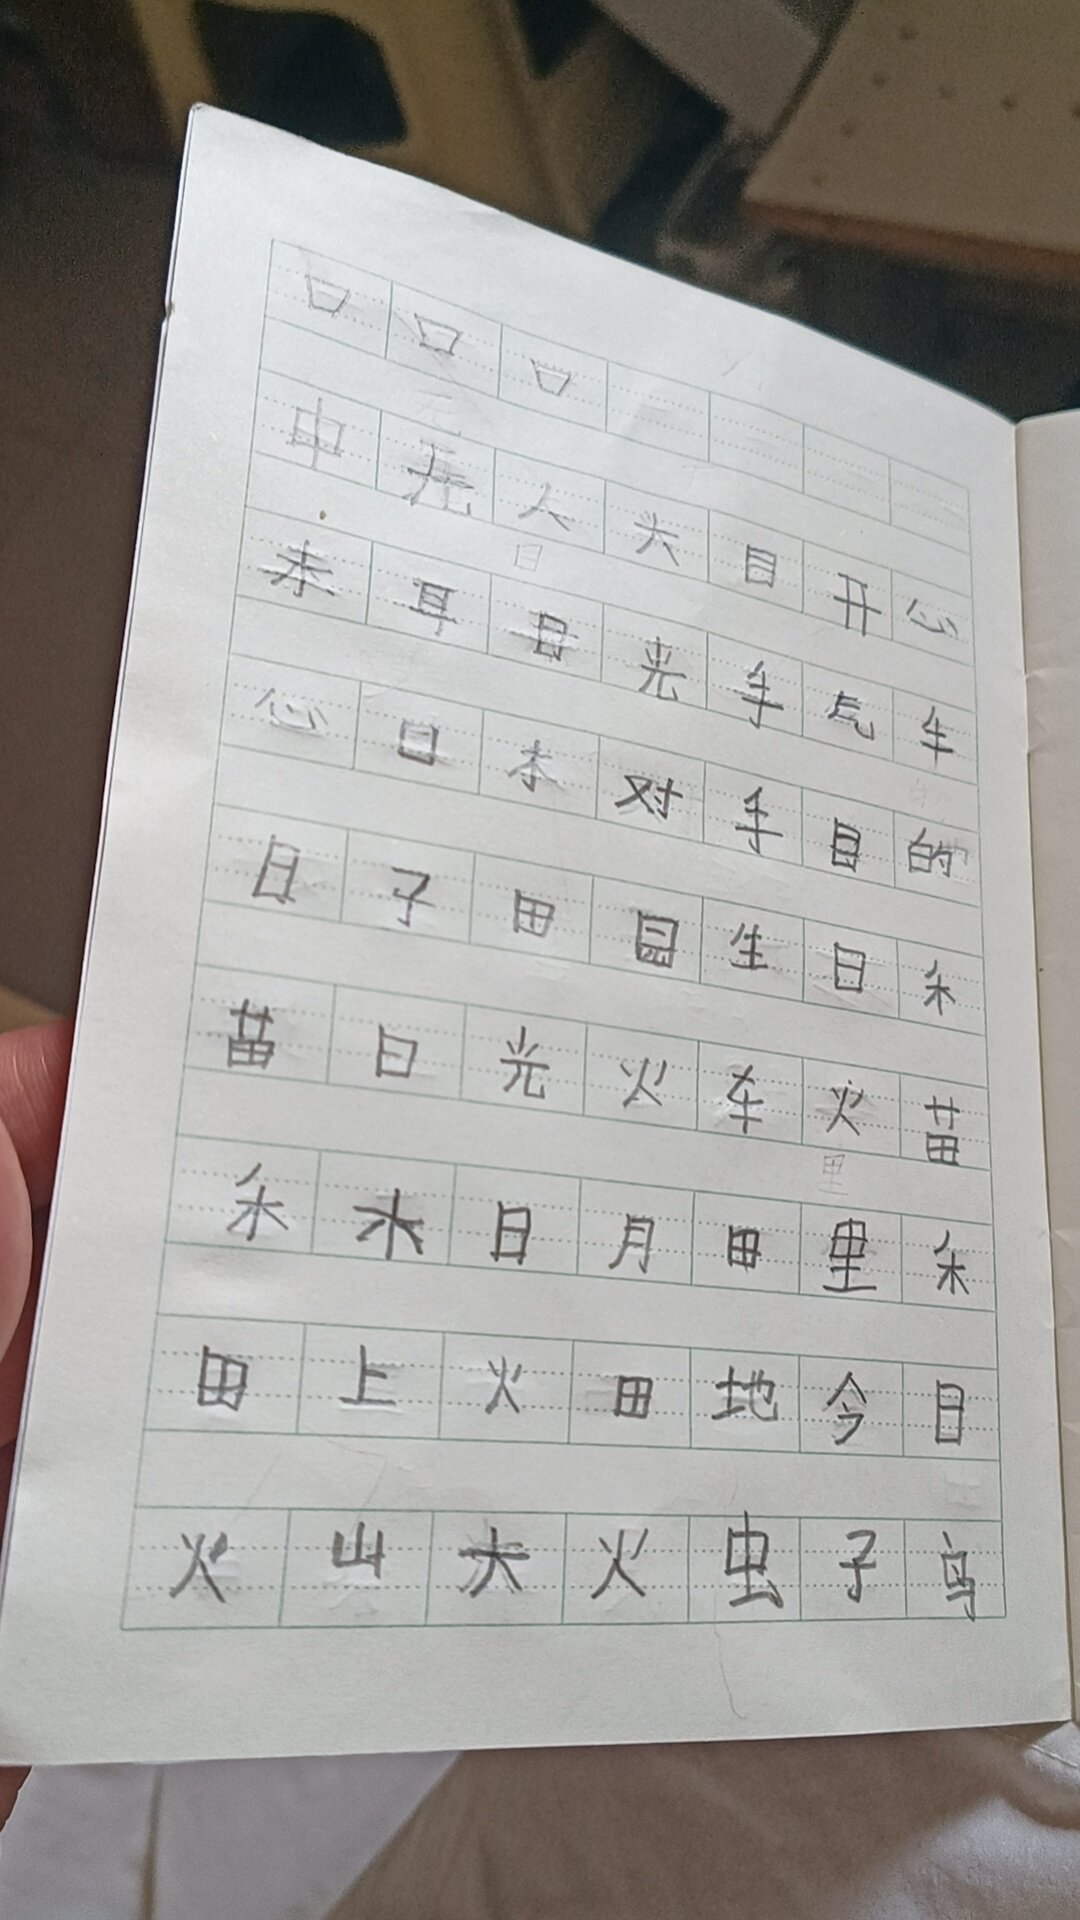 口 口 口
中 无 人 头 目 开 心
未 耳 日 光 手 气 车
心 日 木 对 手 目 的
日 子 田 生 日 禾
苗 日 光 火 车 火 苗
里
禾 木 日 月 田 里 禾
田 上 火 田 地 今 日
火 山 大 火 虫 子 鸟